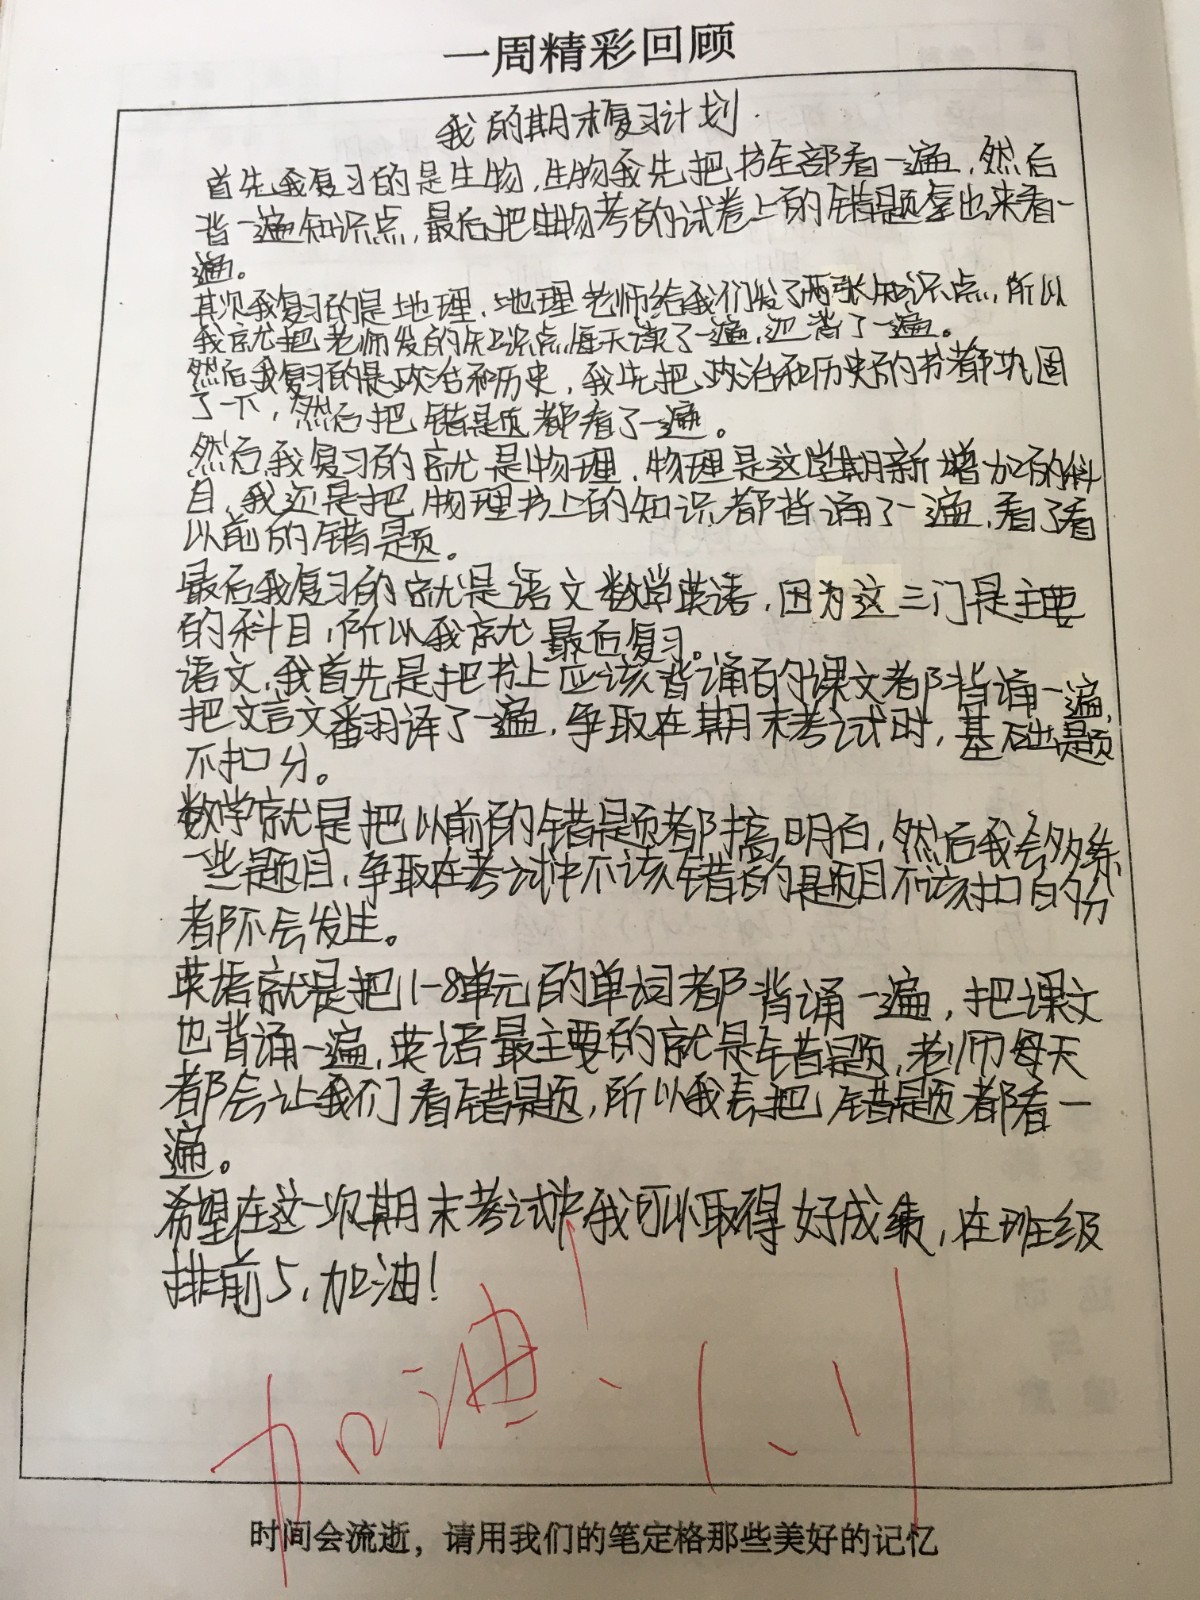 一周精彩回顾
我的期末复习计划
首先,我复习的是生物,生物我先把书全部看一遍,然后
背一遍知识点,最后把生物考的试卷上的错题拿出来看一
遍。
其次我复习的是地理,地理老师给我们发了两张知识点,所以
我就把老师发的知识点每天读了一遍,也背了一遍。
然后我复习的是政治和历史,我先把政治和历史的书都巩固
了一下,然后把错题都看了一遍。
然后我复习的就是物理,物理是这学期新增加的科
目,我还是把物理书上的知识都背诵了一遍,看了看
以前的错题
最后我复习的就是语文数学英语,因为这三门是主要
的科目,所以我就最后复习。
语文,我首先是把书上应该背诵的课文都背诵一遍,
把文言文翻译了一遍,争取在期末考试时,基础题
不扣分。
数学就是把以前的错题都搞明白,然后我会多练
一些题目,争取在考试时不该错的题目不该扣的分
都不会发生。
英语就是把1-8单元的单词都背诵一遍,把课文
也背诵一遍,英语最主要的就是错题,老师每天
都会让我们看错题,所以我会把错题都看一
遍。
希望在这次期末考试中我可以取得好成绩,在班级
排前了,加油!
时间会流逝,请用我们的笔定格那些美好的记忆